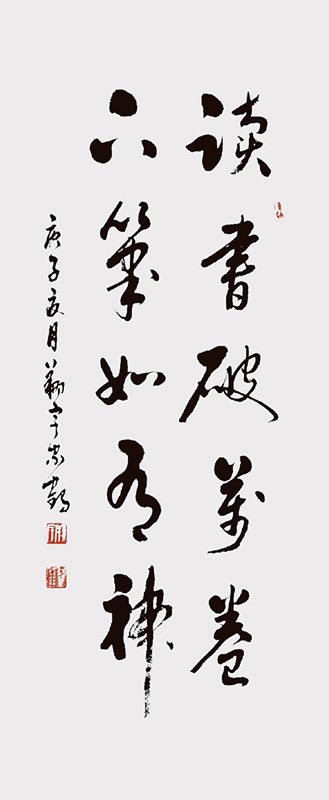 读书破万卷
下笔如有神
庚子夏月